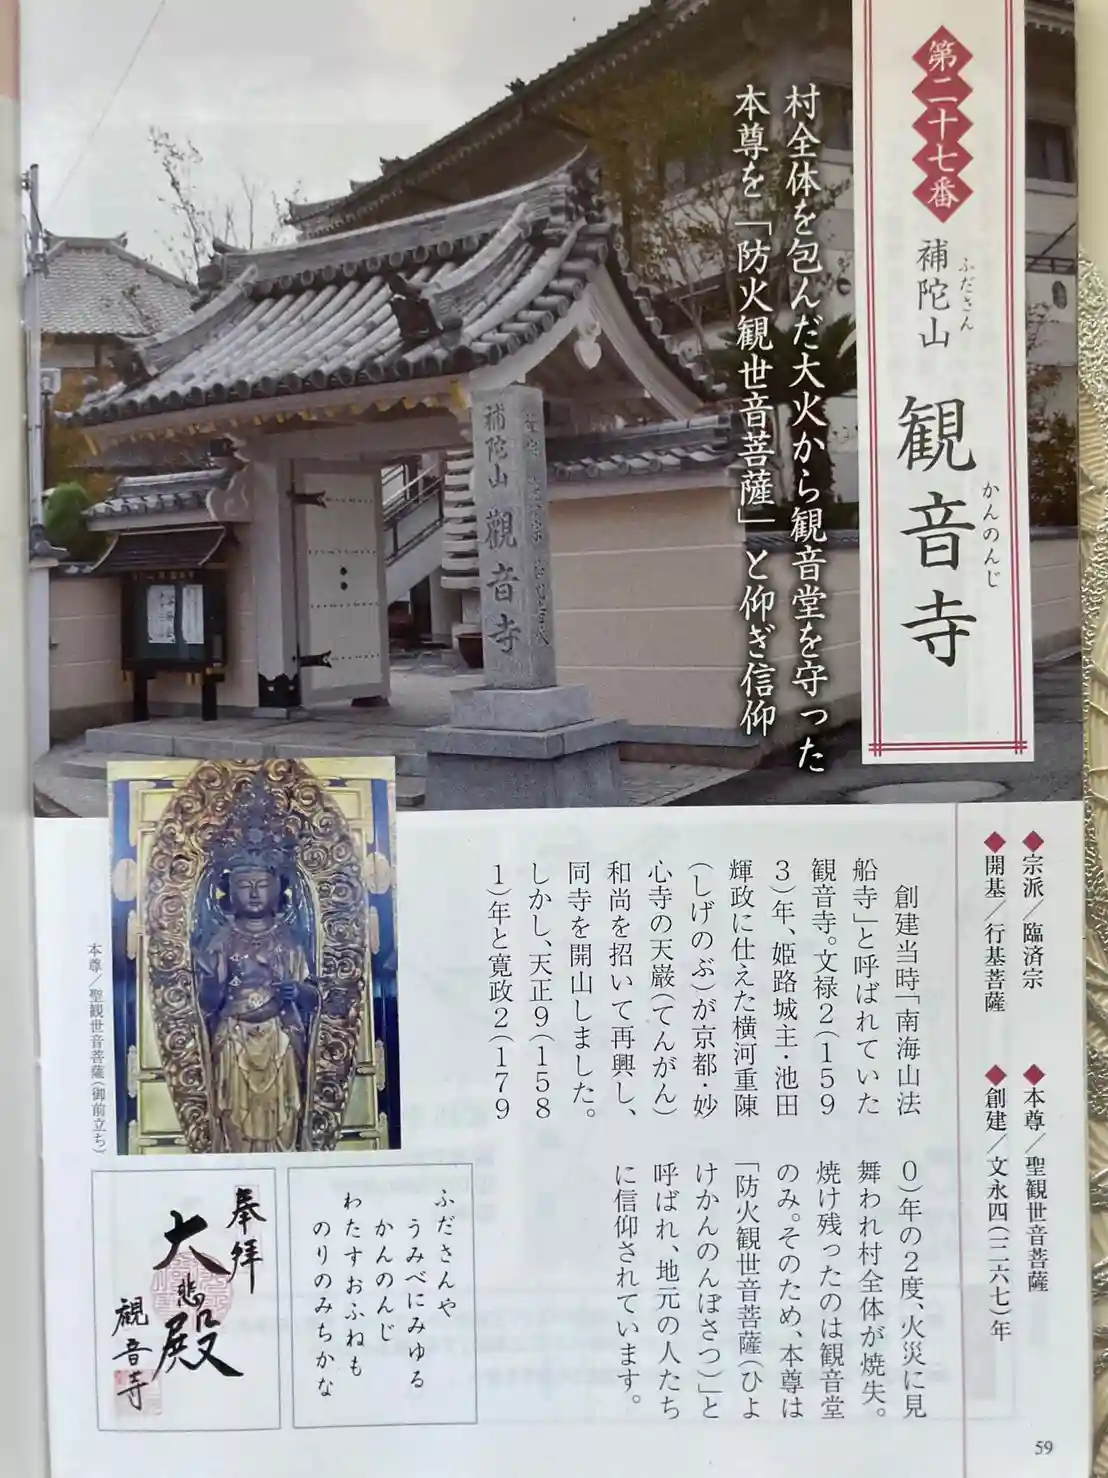 第二十七番
補陀山
ふださん
観音寺
かんのんじ
村全体を包んだ大火から観音堂を守った
本尊を「防火観世音菩薩」と仰ぎ信仰
補陀山 觀音寺
◆宗派／臨済宗
◆本尊／聖観世音菩薩
◆開基／行基菩薩
◆創建／文永四(一二六七)年
創建当時「南海山法
船寺」と呼ばれていた
観音寺。文禄2(159
3)年、姫路城主・池田
輝政に仕えた横河重陳
(しげのぶ)が京都・妙
心寺の天巌(てんがん)
和尚を招いて再興し、
同寺を開山しました。
しかし、天正9(158
1)年と寛政2(179
0)年の2度、火災に見
舞われ村全体が焼失。
焼け残ったのは観音堂
のみ。そのため、本尊は
「防火観世音菩薩(ひよ
けかんのんぼさつ)」と
呼ばれ、地元の人たち
に信仰されています。
本尊／聖観世音菩薩(御前立ち)
ふださんや
うみべにみゆる
かんのんじ
わたすおふねも
のりのみちかな
奉拝
大悲殿
観音寺
59